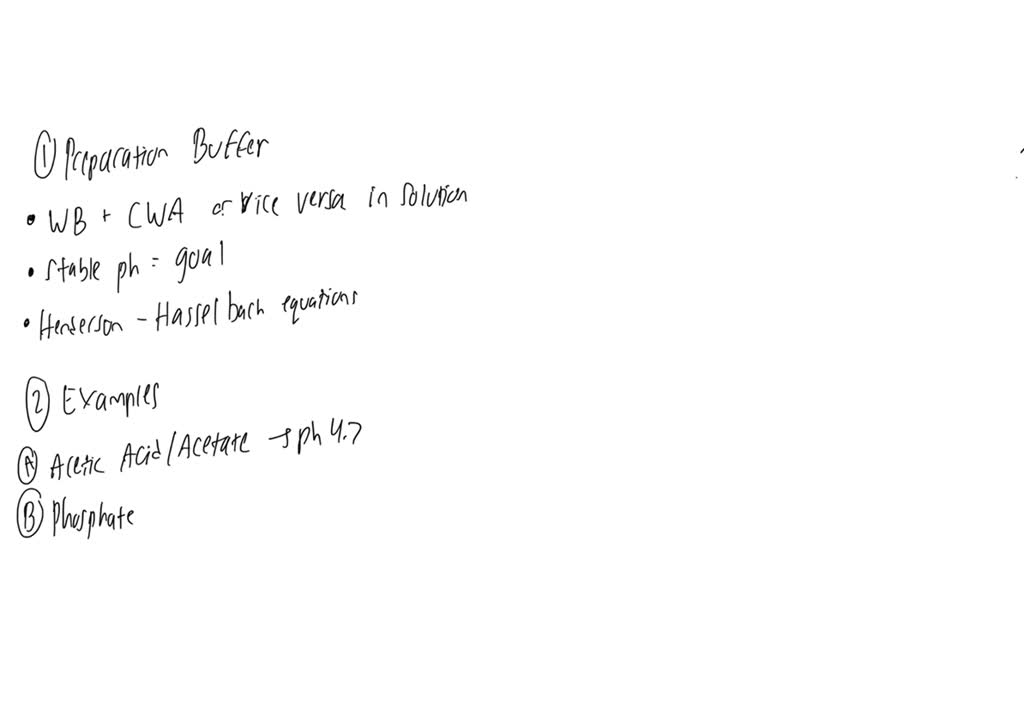 ① Preparation Buffer
• WB + CWA or vice versa in solution
• stable ph = goal
• Henderson - Hasselbach equations
② Examples
Ⓐ Acetic Acid/Acetate → ph 4.7
Ⓑ Phosphate